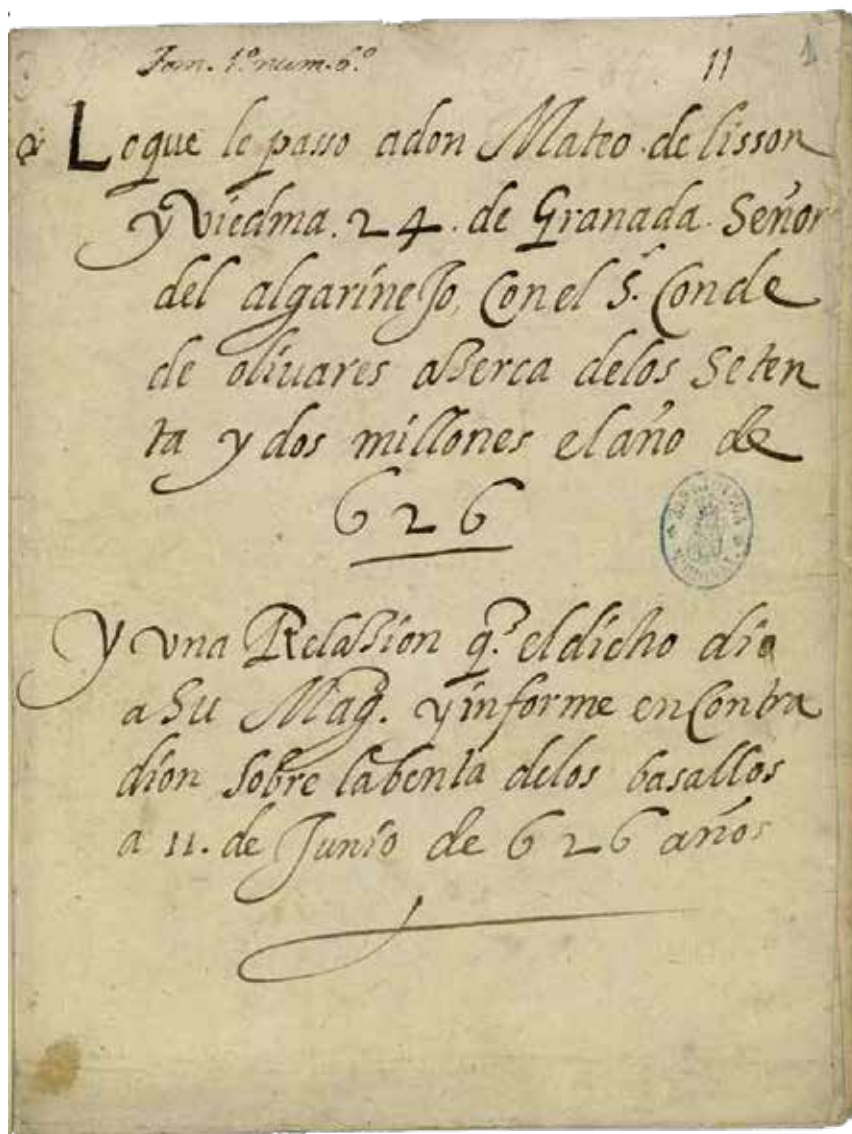 Tom. 1º num. 6º
11
1
Lo que le passo a don Mateo de lisson
y Viedma. 24. de Granada. Señor
del algarinejo, Con el S.r Conde
de oliuares aserca delos Seten
ta y dos millones el año de
626
BIBLIOTECA
NACIONAL
Y vna Relasion q.e el dicho dio
a Su Mag. y informe en Contra
dion sobre la benta delos basallos
a 11. de Junio de 626 años